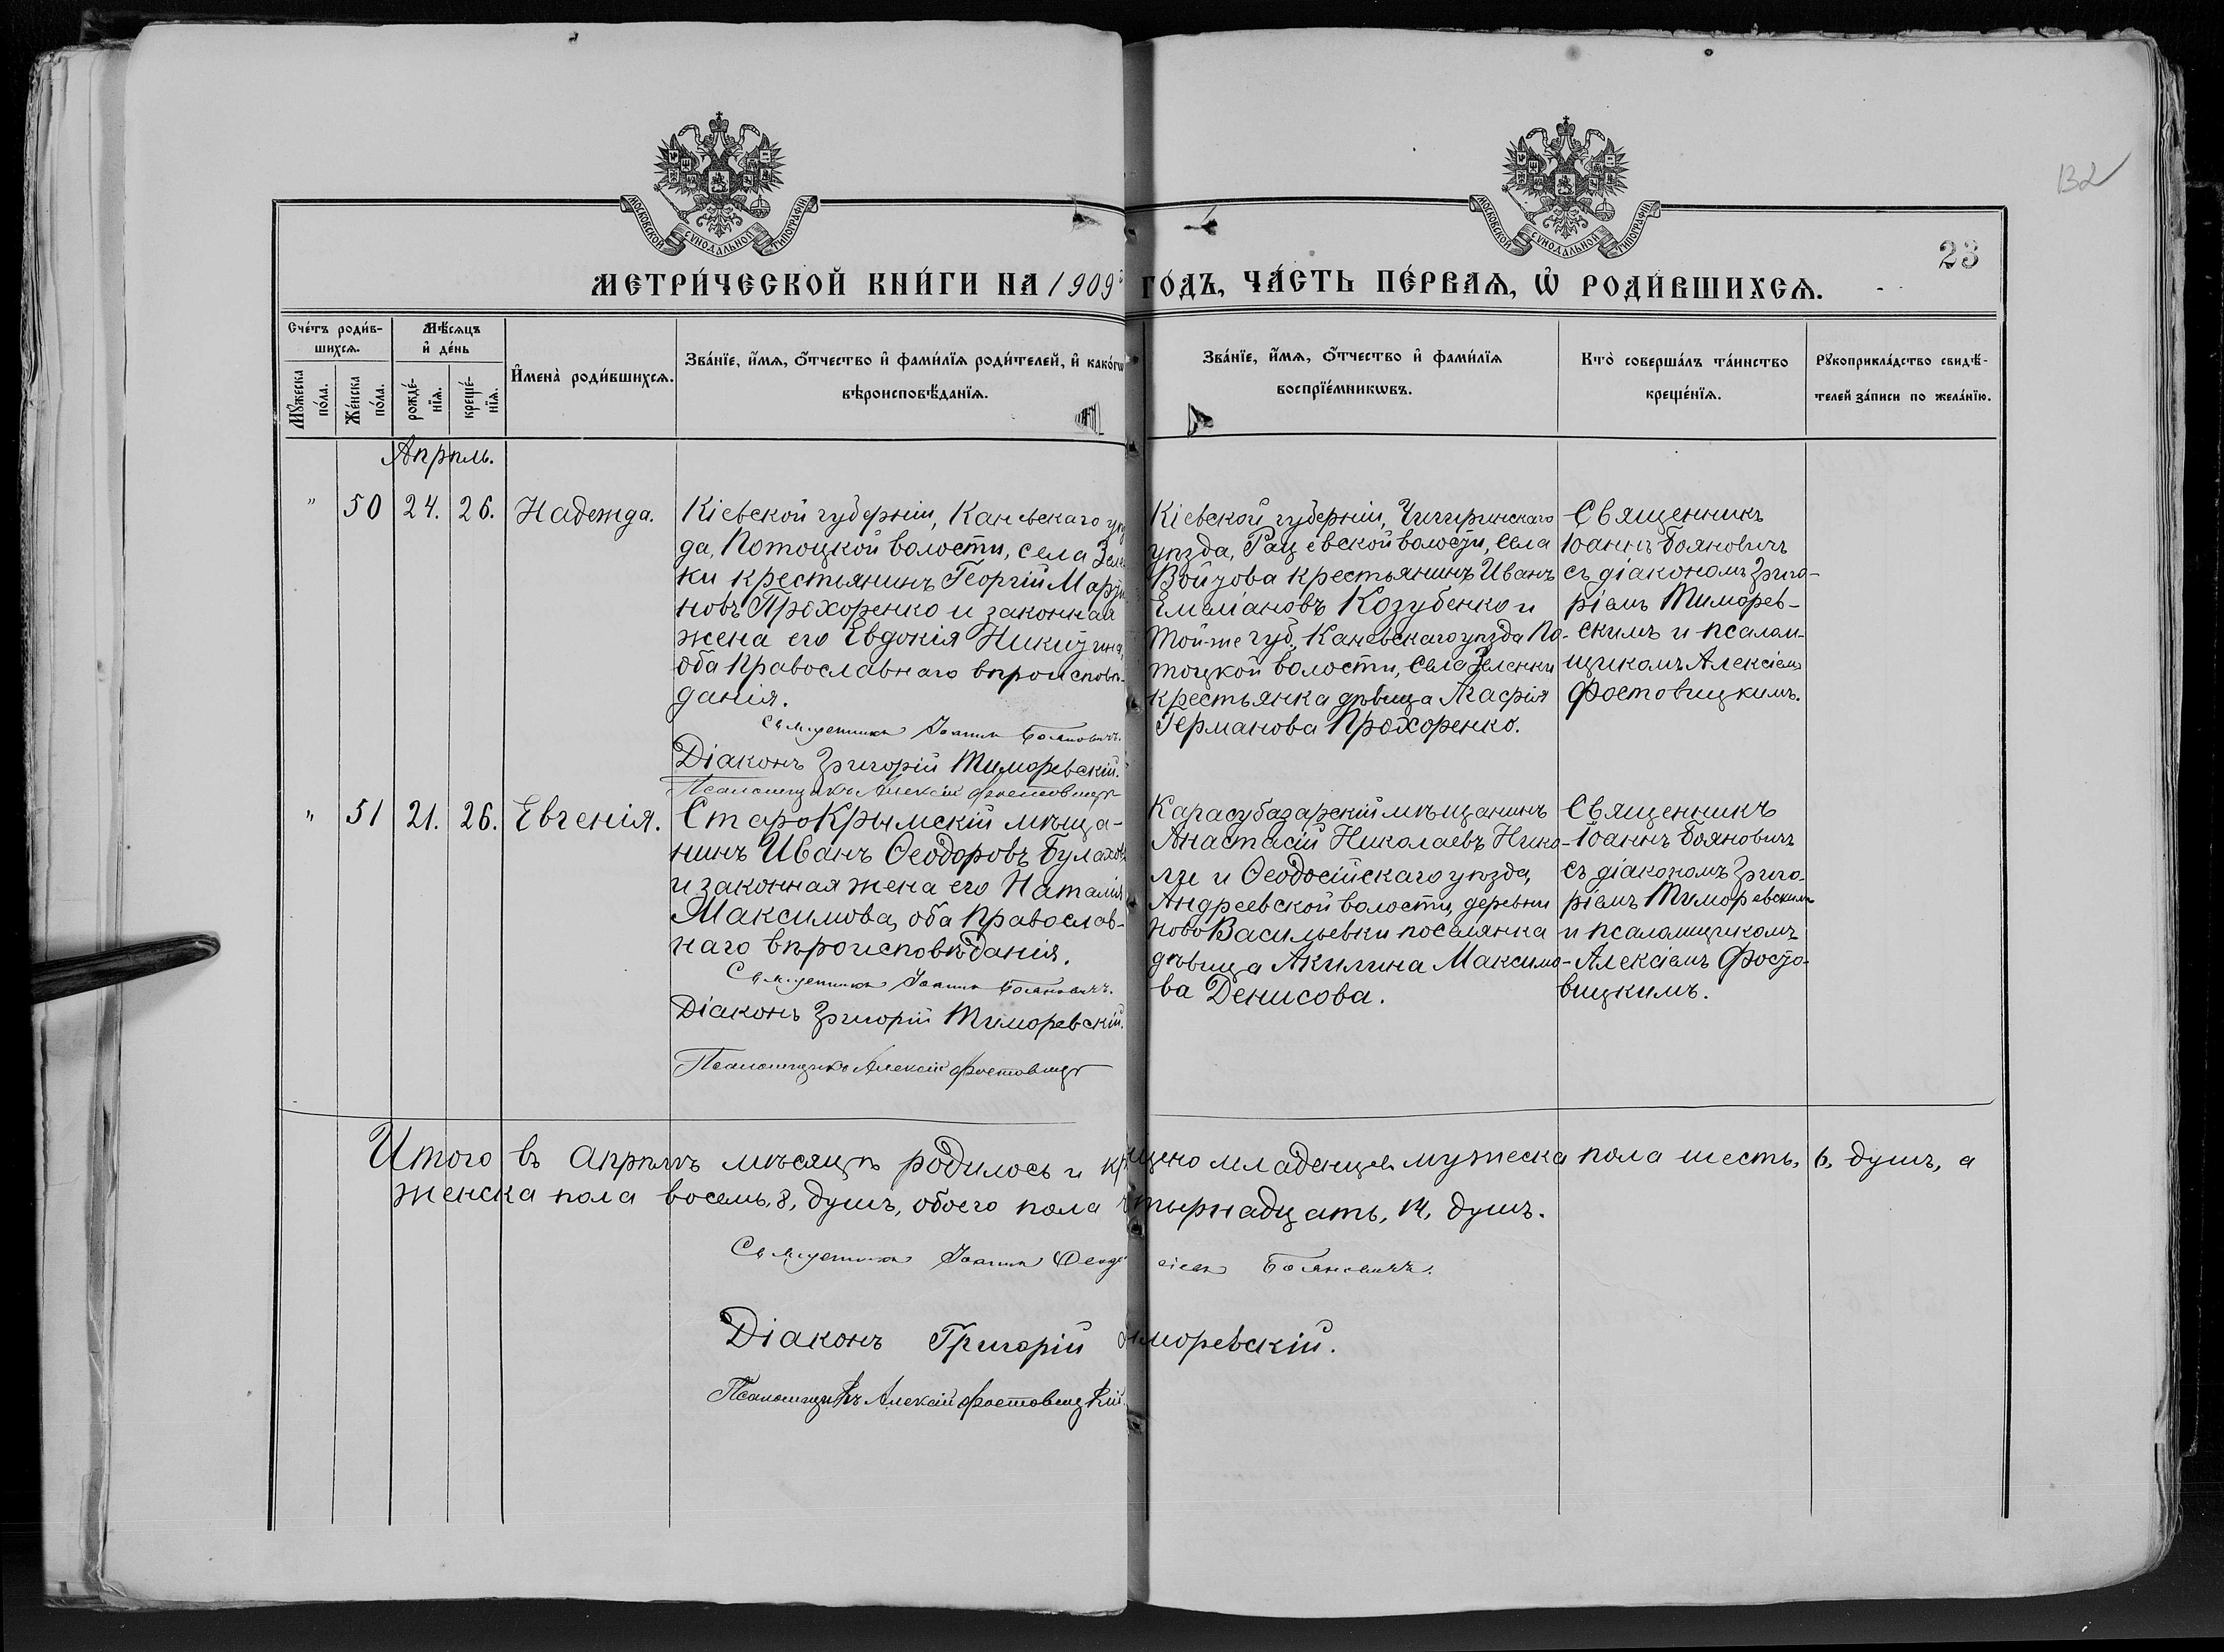 132
23
МОСКОВСКОЙ СУНОДАЛЬНОЙ ТИПОГРАФІИ
МОСКОВСКОЙ СУНОДАЛЬНОЙ ТИПОГРАФІИ
МЕТРИ́ЧЕСКОЙ КНИ́ГИ НА 1909й ГО́ДЪ, ЧА́СТЬ ПЕ́РВАѦ, Ѿ РОДИ́ВШИХСѦ.
Сче́тъ роди́вшихсѧ.
Мꙋ́жеска по́ла.
Же́нска по́ла.
Мѣ́сѧцъ и҆ де́нь
рожде́нїѧ.
креще́нїѧ.
И҆мена̀ роди́вшихсѧ.
Зва́нїе, и҆́мѧ, ѻ҆́тчество и҆ фами́лїѧ роди́телей, и҆ како́гѡ
вѣроисповѣ́данїѧ.
Зва́нїе, и҆́мѧ, ѻ҆́тчество и҆ фами́лїѧ
воспрїе́мникѡвъ.
Кто̀ соверша́лъ та́инство
креще́нїѧ.
Рꙋкоприкла́дство свидѣ́-
телей за́писи по жела́нїю.
Апрѣль.
" 50 24. 26. Надежда.
Кіевской губерніи, Каневскаго уѣз
да, Потоцкой волости, села Зелен
ки крестьянинъ Георгій Марти
новъ Прохоренко и законная
жена его Евдокія Никитина,
оба Православнаго вѣроисповѣ-
данія.
Священникъ Іоаннъ Бояновичъ.
Діаконъ Григорій Тиморевскій.
Псаломщикъ Алексій Фостовицк
Кіевской губерніи, Чигиринскаго
уѣзда, Рацевской волости, села
Войтова крестьянинъ Иванъ
Емиліановъ Козубенко и
той-же губ. Каневскаго уѣзда По-
тоцкой волости, села Зеленки
крестьянка дѣвица Агафія
Германова Прохоренко.
Священникъ
Іоаннъ Бояновичъ
съ діакономъ Григо-
ріемъ Тиморев-
скимъ и псалом-
щикомъ Алексіемъ
Фостовицкимъ.
" 51 21. 26. Евгенія.
СтароКрымскій мѣща-
нинъ Иванъ Ѳеодоровъ Булахов
и законная жена его Наталія
Максимова, оба Православ-
наго вѣроисповѣданія.
Священникъ Іоаннъ Бояновичъ.
Діаконъ Григорій Тиморевскій.
Псаломщикъ Алексій Фостовицк
Карасубазарскій мѣщанинъ
Анастасій Николаевъ Нико-
ли и Ѳеодосійскаго уѣзда,
Андреевской волости, деревни
НовоВасильевки поселянка
дѣвица Акилина Максимо-
ва Денисова.
Священникъ
Іоаннъ Бояновичъ
съ діакономъ Григо-
ріемъ Тиморевскимъ
и псаломщикомъ
Алексіемъ Фосто-
вицкимъ.
Итого въ Апрѣлѣ мѣсяцѣ родилось и кр щено младенцевъ мужеска пола шесть, 6, душъ, а
женска пола восемь, 8, душъ, обоего пола ч тырнадцать, 14, душъ.
Священникъ Іоаннъ Ѳеодо сіевъ Бояновичъ.
Діаконъ Григорій Тиморевскій.
Псаломщикъ Алексій Фостовицкій.